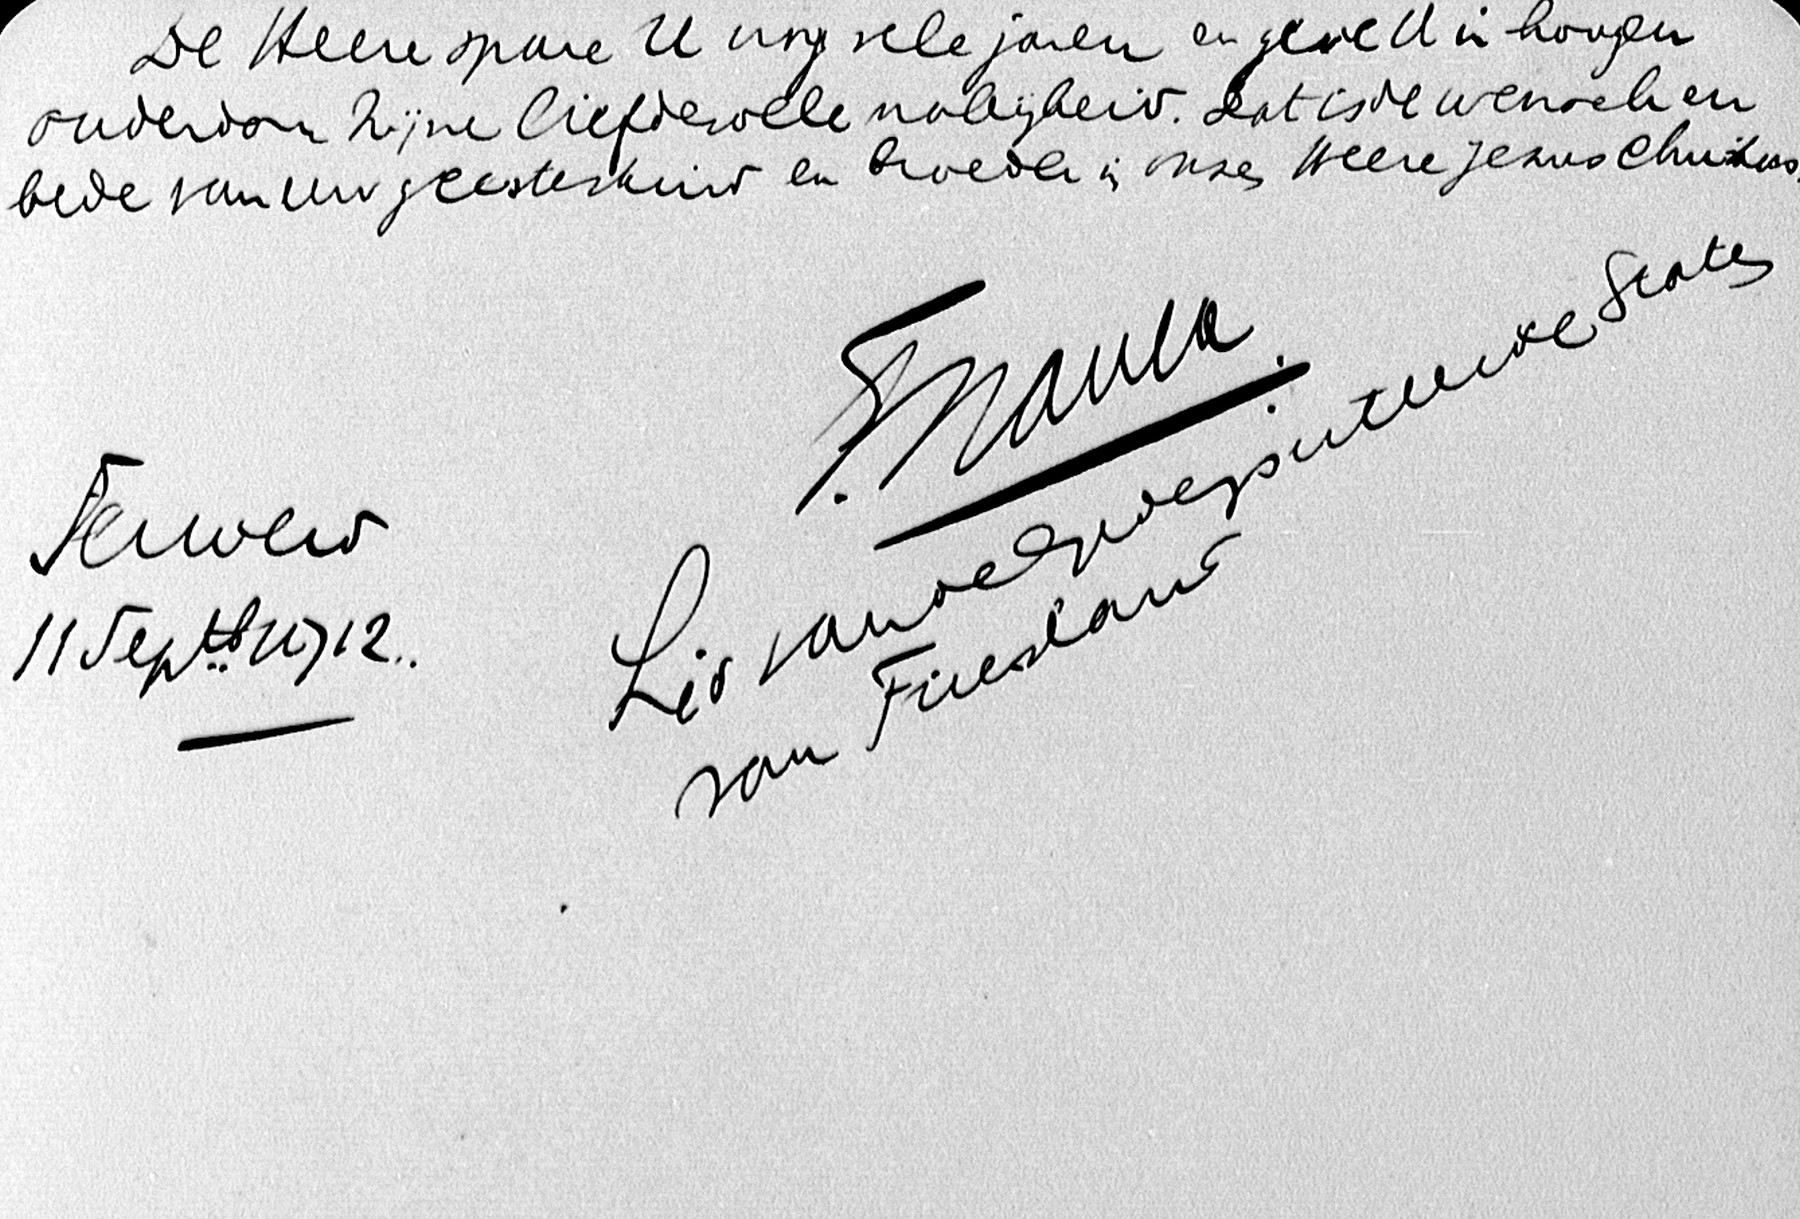 De Heere spare U nog vele jaren en geve U in hoogen
ouderdom Zijne liefdevolle nabijheid. Dat is de wensch en
bede van Uw geesteskind en broeder in onzen Heere Jezus Christus.
Lid van de Gedeputeerde Staten
van Friesland
Ferwerd
11 Septb 1912.